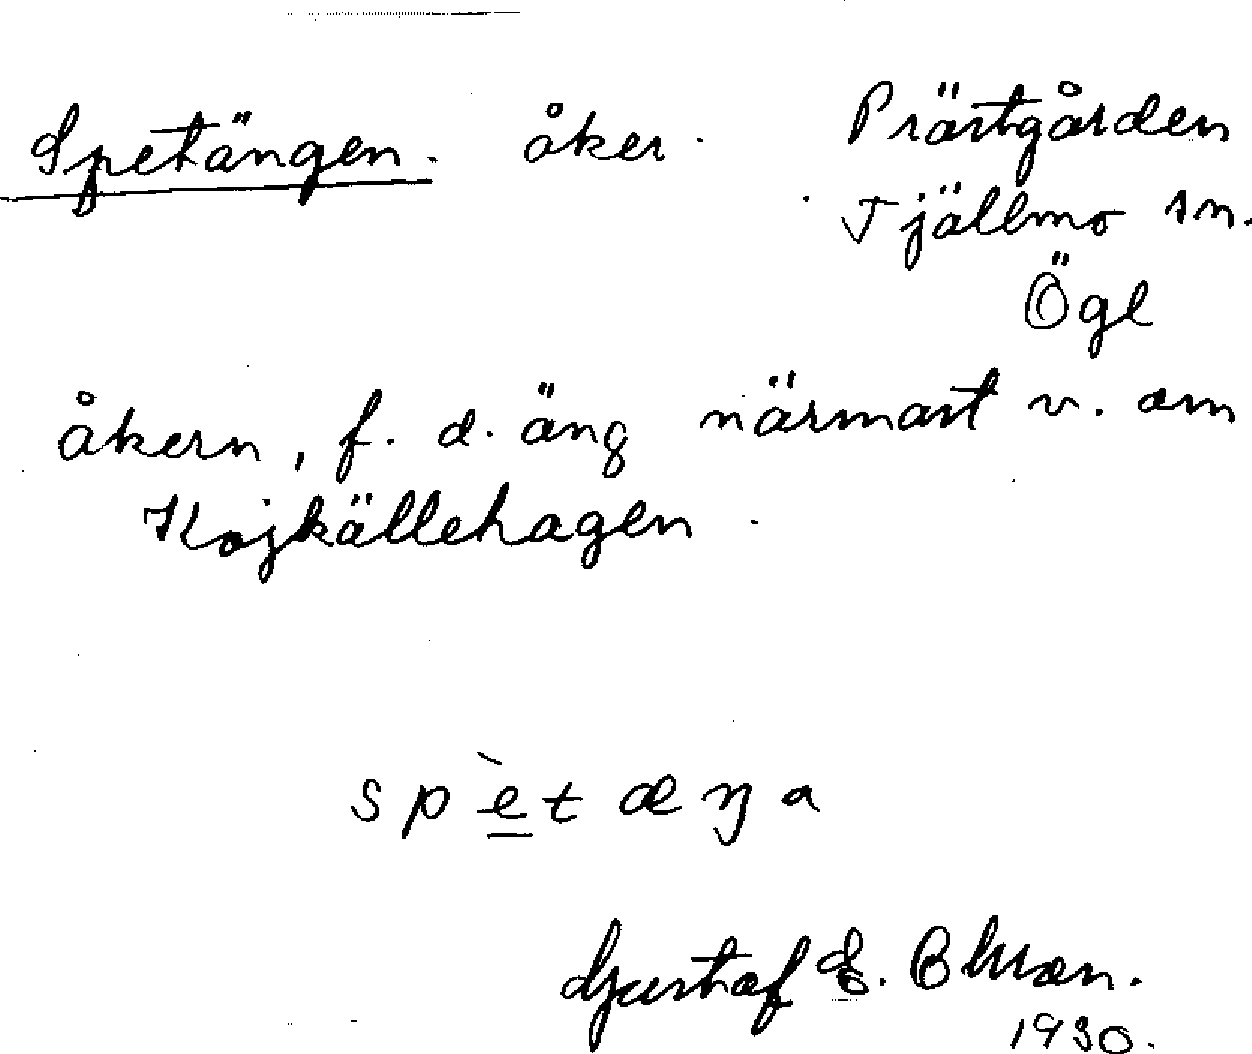 Spetängen. åker. Prästgården
Tjällmo sn.
Ögl
åkern, f. d. äng närmast v. om
Kojkällehagen.
spètæŋa
Gustaf E. Blman.
1930.